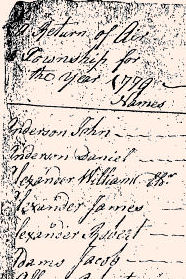 A Return of Air
Township for
the Year 1779
Names
Anderson John
Anderson Daniel
Alexander William
Alexander James
Alexander Robert
Adams Jacob